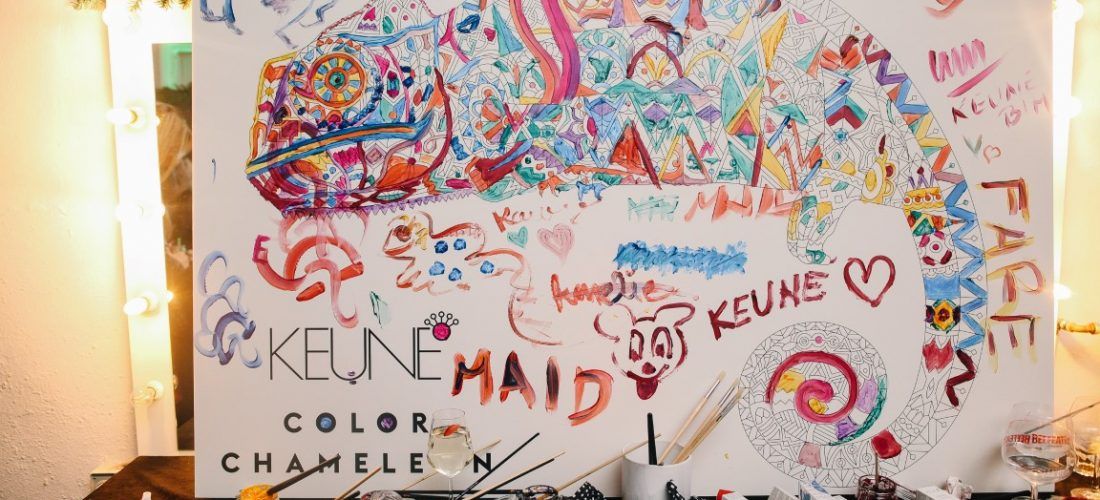 KEUNE
BIM
FABE
Amelie
KEUNE
KEUNE
MAID
COLOR
CHAMELEON
BEEFEATER